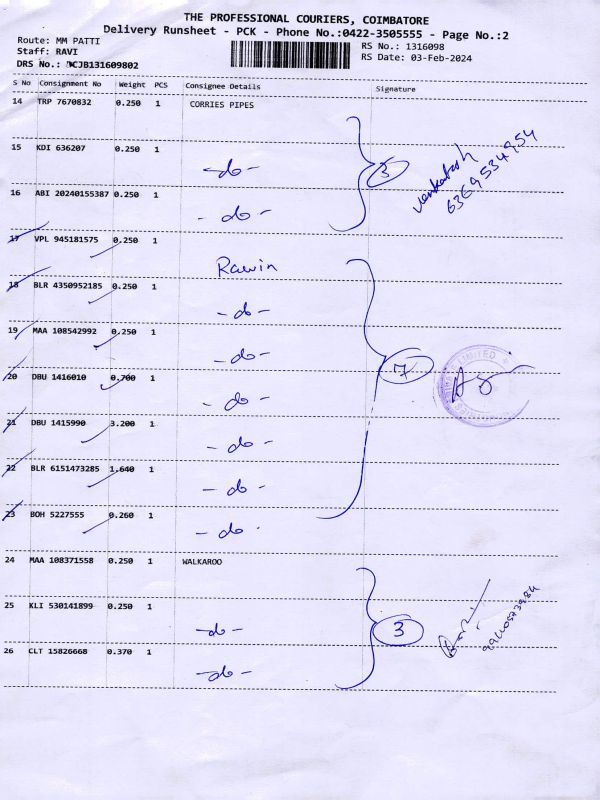 THE PROFESSIONAL COURIERS, COIMBATORE
Delivery Runsheet - PCK - Phone No.:0422-3505555 - Page No.:2
Route: MM PATTI
RS No.: 1316098
Staff: RAVI
RS Date: 03-Feb-2024
DRS No.: DCJB131609802
S No Consignment No Weight PCS Consignee Details Signature
14 TRP 7670832 0.250 1 CORRIES PIPES
15 KDI 636207 0.250 1 -do-
3 Venkatesh
6369534954
16 ABI 20240155387 0.250 1 -do-
17 VPL 945181575 0.250 1 Rawin
18 BLR 4350952185 0.250 1 -do-
19 MAA 108542992 0.250 1 -do-
7
LIMITED
20 DBU 1416010 0.700 1 -do-
21 DBU 1415990 3.200 1 -do-
22 BLR 6151473285 1.640 1 -do-
23 BOH 5227555 0.260 1 -do-
24 MAA 108371558 0.250 1 WALKAROO
25 KLI 530141899 0.250 1 -do-
3
26 CLT 15826668 0.370 1 -do-